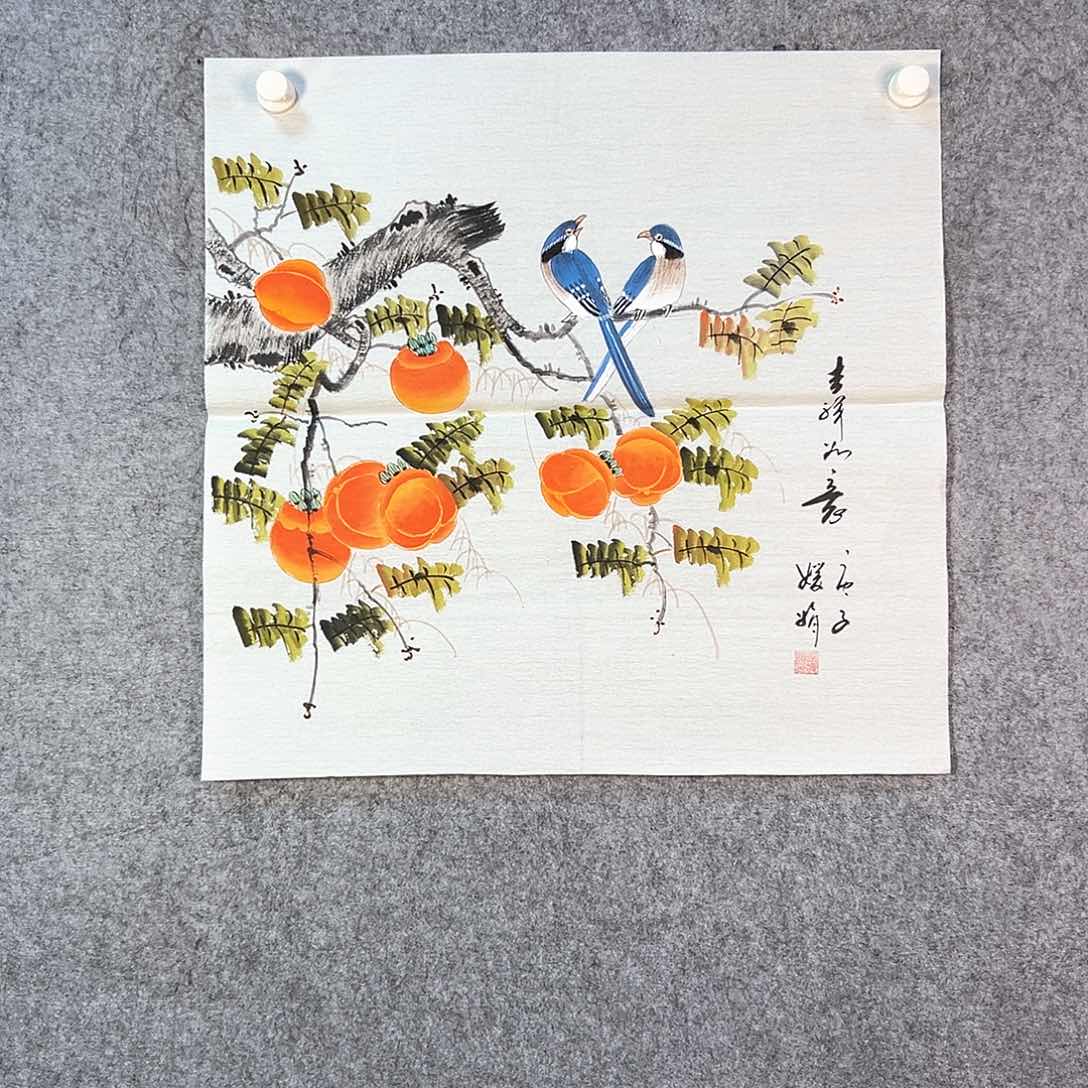 吉祥如意
庚子
媛娟